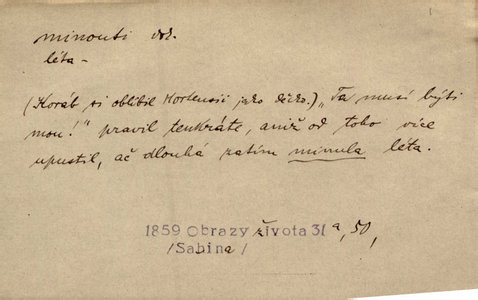 minouti dok.
léta –
(Koráb si oblíbil Hortensii jako děcko.) „Ta musí býti
mou!" pravil tenkráte, aniž od toho více
upustil, ač dlouhá zatím minula léta.
1859 Obrazy života 31a, 50,
/Sabina/